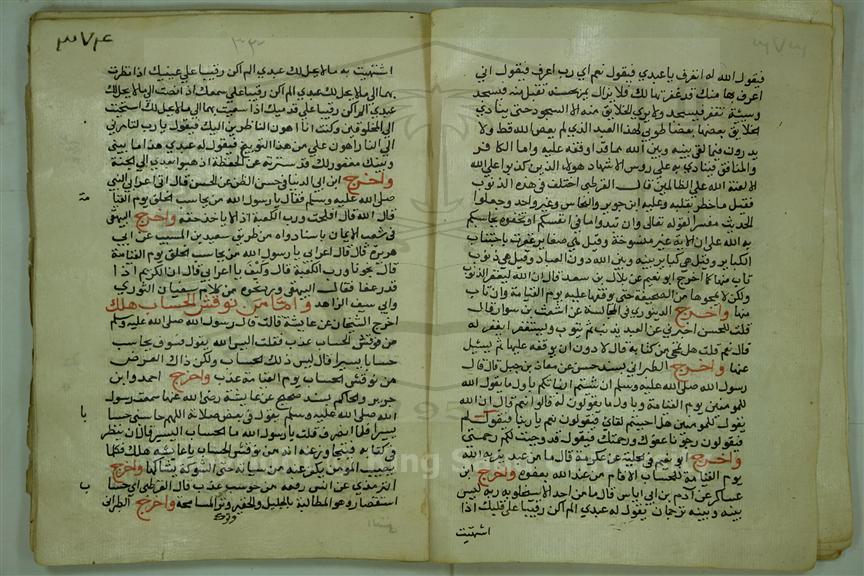 فيقول الله له اتعرف يا عبدي فيقول نعم اي رب اعرف فيقول اني
اعرف بها منك قد غفرتها لك فلا يزال يمر بحسنة تقبل فيسجد
وسيئة تغفر فيسجد ولا يرى الخلايق منه الا السجود حتى ينادي
الخلايق بعضها بعضا طوبى لهذا العبد الذي لم يعص الله قط ولا
يدرون فيما لقي بينه وبين الله مما قد اوقفه عليه واما الكافر
والمنافق فينادي به على روس الاشهاد هولاء الذين كذبوا على الله
الا لعنة الله على الظالمين قال القرطبي اختلف في هذه الذنوب
فقيل ما خطر بقلبه وعليه ابن جرير والنحاس وغير واحد وجعلوا
الحديث مفسرا لقوله تعالى وان تبدوا ما في انفسكم او تخفوه يحاسبكم
به الله على ان الاية غير منسوخة وقيل هي صغاير غفرت باجتناب
الكباير وقيل هي كباير بينه وبين الله دون العباد وقيل هي ذنوب
تاب منها كما اخرج ابو نعيم عن بلال بن سعد قال ان الله ليغفر الذنوب
ولكن لا يمحوها من الصحيفة حتى يوقفه عليها يوم القيامة وان تاب
منها واخرج الدينوري في المجالسة عن اشعث بن سوار قال
قلت للحسن اخبرني عن العبد يذنب ثم يتوب ويستغفر ايغفر له
قال نعم قلت هل يمحى من كتابه قال لا دون ان يوقفه عليها ثم يسئل
عنها واخرج الطبراني بسند حسن عن معاذ بن جبل قال قال
رسول الله صلى الله عليه وسلم ان شئتم انباتكم باول ما يقول الله
للمومنين يوم القيامة وباول ما يقولون له قالوا نعم قال ان الله
يقول للمومنين هل احببتم لقائي فيقولون نعم يا ربنا فيقول لم
فيقولون رجونا عفوك ورحمتك فيقول قد وجبت لكم رحمتي
واخرج ابو نعيم في الحلية عن عكرمة قال ما من عبد يقربه الله
يوم القيامة للحساب الا قام من عند الله بعفوه واخرج ابن
عساكر عن ادم بن ابي اياس قال ما من احد الا سيخلو به ربه ليس
بينه وبينه ترجمان يقول له عبدي الم اكن رقيبا على قلبك اذا
اشتهيت
٣٧٤
اشتهيت به ما لا يحل لك عبدي الم اكن رقيبا على عينيك اذا نظرت
بهما الى ما لا يحل لك عبدي الم اكن رقيبا على سمعك اذا انصت الى ما لا يحل لك
عبدي الم اكن رقيبا على قدميك اذا سعيت بهما الى ما لا يحل لك استحيت
الى المخلوقين وكنت انا اهون الناظرين اليك فيقول يا رب لتامر بي
الى النار اهون علي من هذا التوبيخ فيقول له عبدي هذا ما بيني
وبينك مغفور لك قد سترته عن الحفظة اذهبوا بعبدي الى الجنة
واخرج ابن ابي الدنيا في حسن الظن عن الحسن قال اتى اعرابي النبي
صلى الله عليه وسلم فقال يا رسول الله من يحاسب الخلق يوم القيا مة
قال الله قال افلحت ورب الكعبة اذا لا ياخذ حقه واخرج البيهقي
في شعب الايمان باسناد واه من طريق سعيد بن المسيب عن ابي
هريرة قال قال اعرابي يا رسول الله من يحاسب الخلق يوم القيامة
قال نجونا ورب الكعبة قال وكيف يا اعرابي قال ان الكريم اذا
قدر عفا قال البيهقي من كلام سفيان الثوري
وابي سيف الزاهد واما من نوقش الحساب هلك
اخرج الشيخان عن عايشة قالت قال رسول الله صلى الله عليه وسلم
من نوقش الحساب عذب فقلت اليس الله يقول فسوف يحاسب
حسابا يسيرا قال ليس ذلك الحساب ولكن ذاك العرض
من نوقش الحساب يوم القيامة عذب واخرج احمد وابن
جرير والحاكم بسند صحيح عن عايشة رضي الله عنها سمعت رسول
الله صلى الله عليه وسلم يقول في بعض صلاته اللهم حاسبني حسا با
يسيرا فلما انصرف قلت يا رسول الله ما الحساب اليسير قال ان ينظر
في كتابه فيتجاوز عنه انه من نوقش الحساب يا عايشة هلك فكلما
يصيب المومن يكفر عنه من سياته حتى الشوكة يشاكها واخرج
الترمذي عن انس رفعه من حوسب عذب قال القرطبي اي حسا ب
استقصاء وهو المطالبة بالجليل والحقير وترك المسامحة واخرج الطبراني